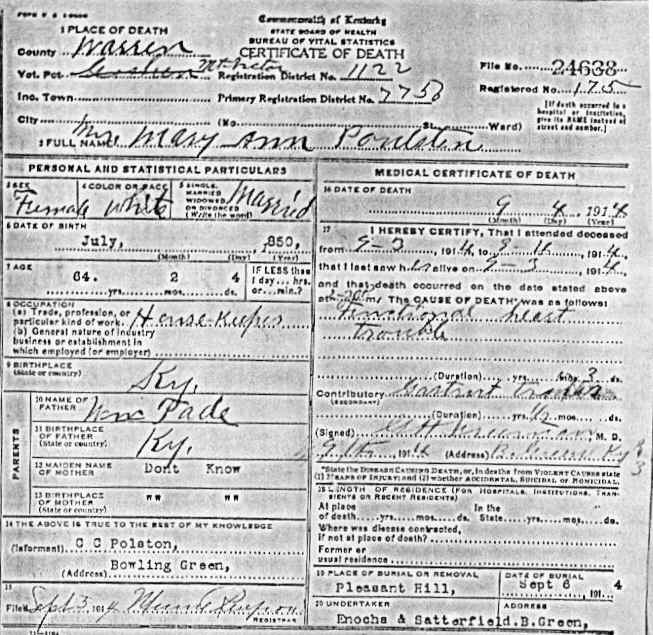 Commonwealth of Kentucky
STATE BOARD OF HEALTH
BUREAU OF VITAL STATISTICS
CERTIFICATE OF DEATH
1 PLACE OF DEATH
County Warren
Vot. Pct. Registration District No. 1122
File No. 24638
Inc. Town Primary Registration District No. 7756
Registered No. 175
City (No. St. Ward)
[If death occurred in a
hospital or institution,
give its NAME instead of
street and number.]
2 FULL NAME Mrs Mary Ann Poulsten
PERSONAL AND STATISTICAL PARTICULARS
3 SEX
Female
4 COLOR OR RACE
White
5 SINGLE,
MARRIED
WIDOWED
OR DIVORCED
(Write the word)
Married
6 DATE OF BIRTH
July, 1850,
(Month) (Day) (Year)
7 AGE
64. yrs. 2 mos. 4 ds.
IF LESS than
1 day... hrs.
or... min.?
8 OCCUPATION
(a) Trade, profession, or
particular kind of work. House-Keeper
(b) General nature of industry
business or establishment in
which employed (or employer)
9 BIRTHPLACE
(State or country) Ky.
PARENTS
10 NAME OF
FATHER Wm Pade
11 BIRTHPLACE
OF FATHER
(State or country) Ky.
12 MAIDEN NAME
OF MOTHER Dont Know
13 BIRTHPLACE
OF MOTHER
(State or country) "" ""
14 THE ABOVE IS TRUE TO THE BEST OF MY KNOWLEDGE
(Informant) C C Polston,
(Address) Bowling Green,
15
Filed Sept 3, 1914
REGISTRAR
MEDICAL CERTIFICATE OF DEATH
16 DATE OF DEATH
9 4, 1914
(Month) (Day) (Year)
17 I HEREBY CERTIFY, That I attended deceased
from 9-3 1914 to 9-4, 1914
that I last saw her alive on 9-3, 1914
and that death occurred on the date stated above
at m. The CAUSE OF DEATH was as follows:
Functional heart
trouble
(Duration) yrs. mos. 3 ds.
Contributory
(SECONDARY)
(Duration) yrs. mos. ds.
(Signed) M. D.
1914 (Address)
*State the DISEASE CAUSING DEATH, or, in deaths from VIOLENT CAUSES state
(1) MEANS OF INJURY; and (2) whether ACCIDENTAL, SUICIDAL or HOMICIDAL.
18 LENGTH OF RESIDENCE (FOR HOSPITALS, INSTITUTIONS, TRAN-
SIENTS OR RECENT RESIDENTS)
At place In the
of death yrs. mos. ds. State yrs. mos. ds.
Where was disease contracted,
if not at place of death?
Former or
usual residence
19 PLACE OF BURIAL OR REMOVAL
Pleasant Hill,
DATE OF BURIAL
Sept 6, 1914
20 UNDERTAKER
ADDRESS
Enochs & Satterfield. B.Green,